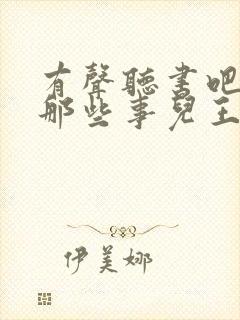 有聲聽書吧
那些事兒王
伊美娜